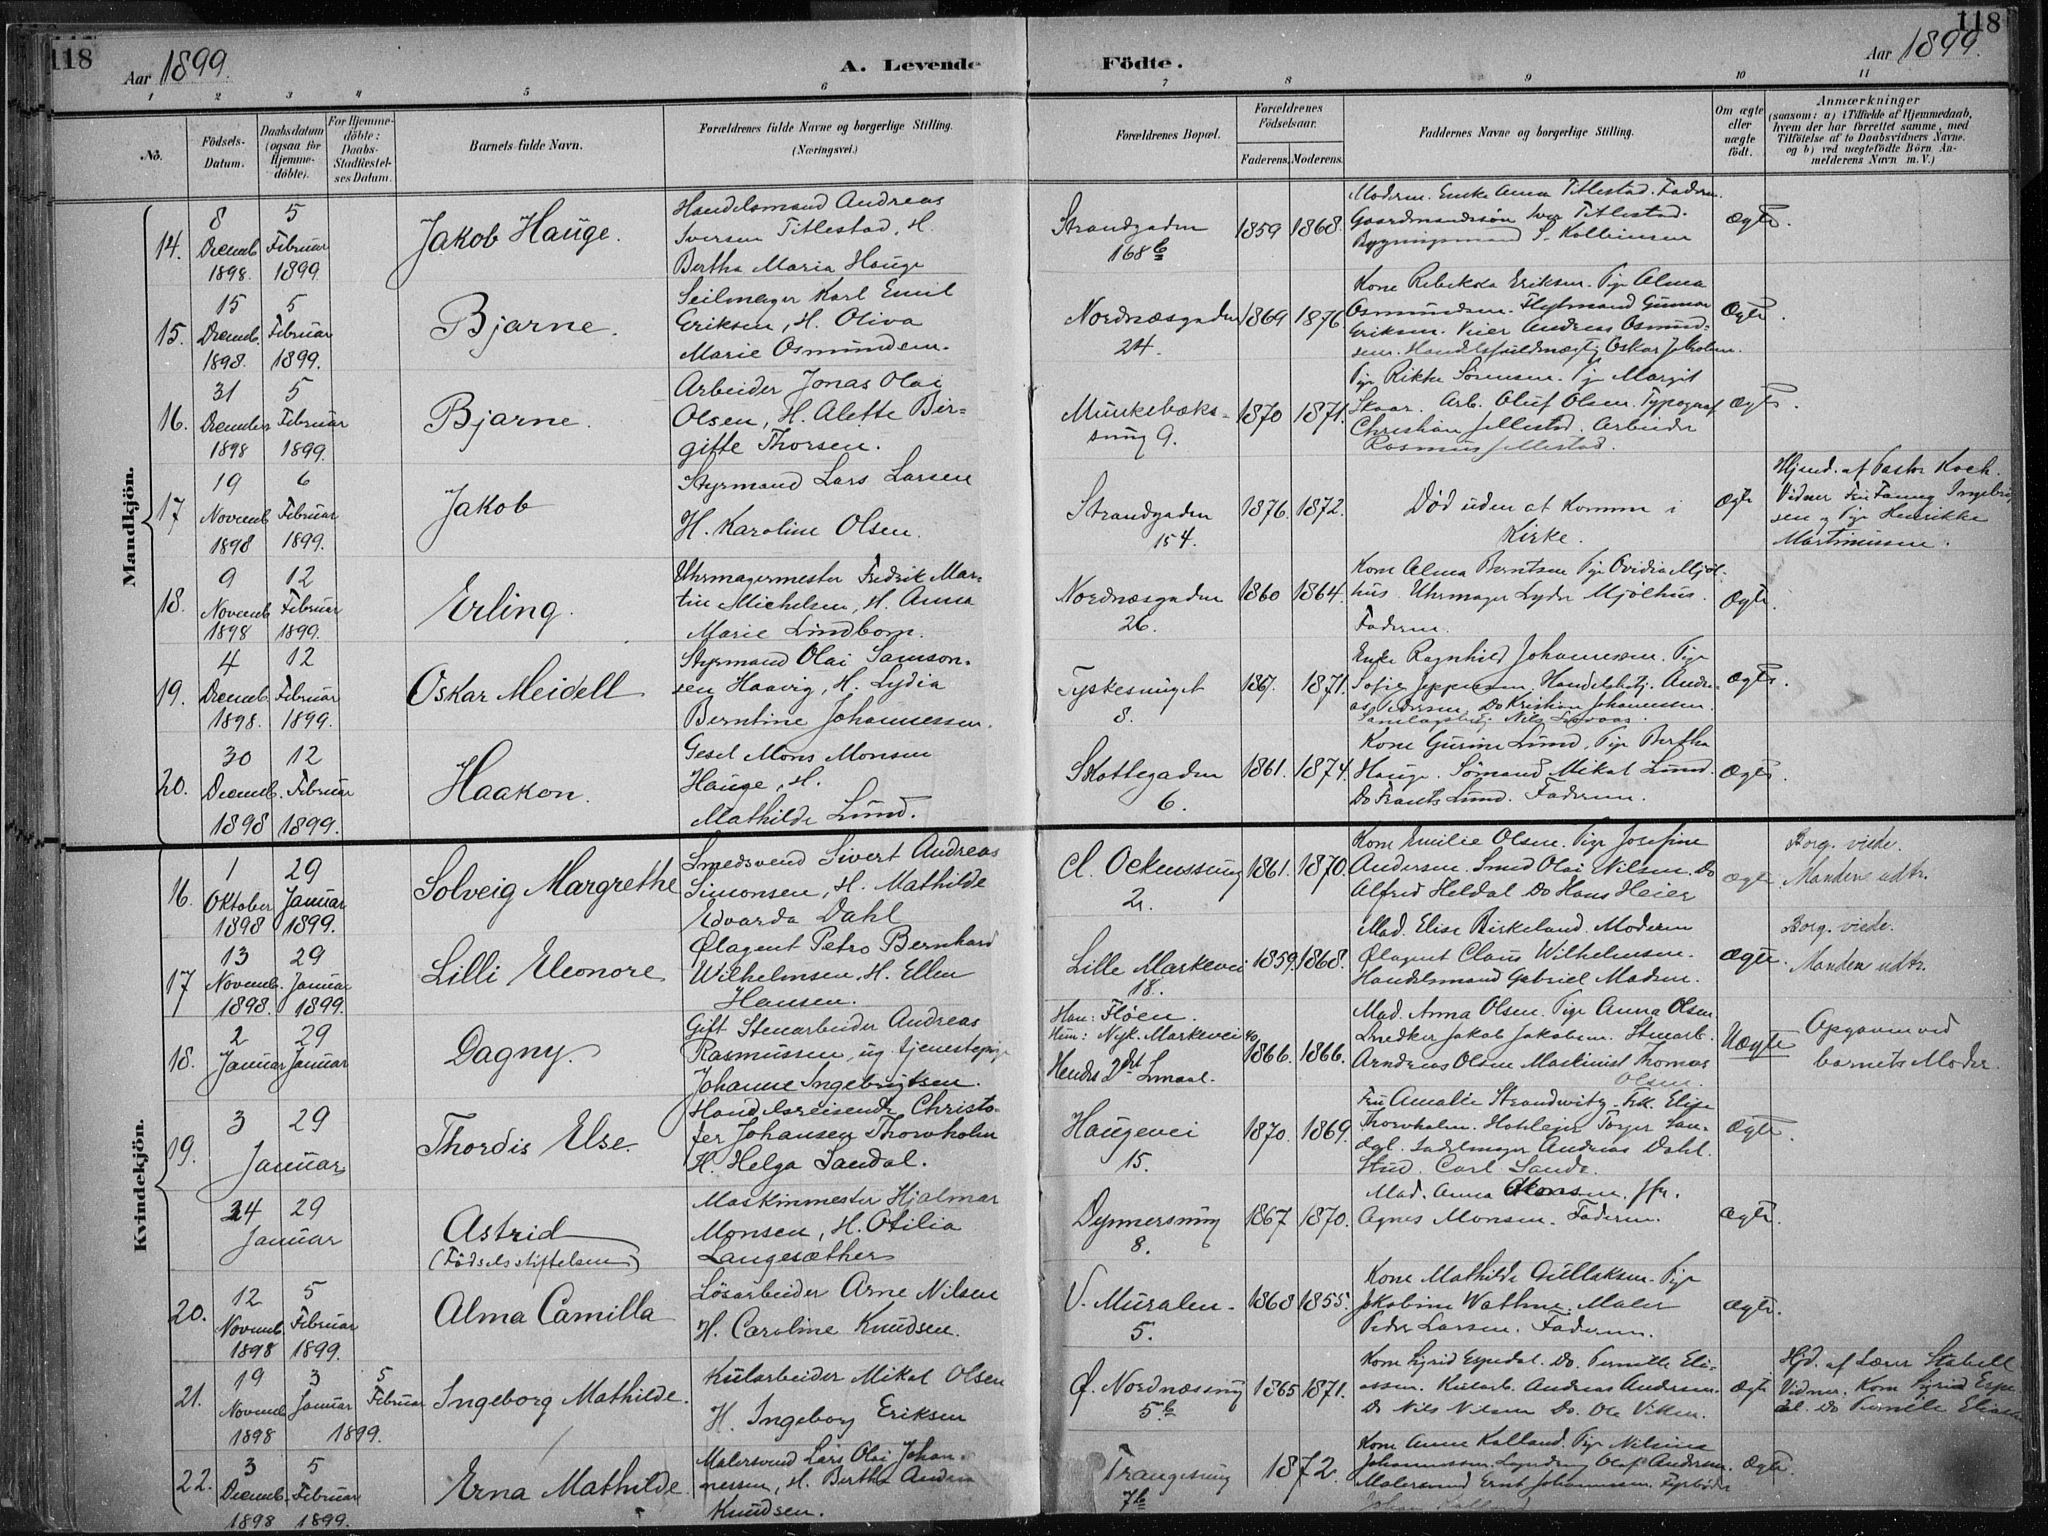 118
Aar 1899.
A. Levende Födte.
Aar 1899.
118
1 2 3 4 5 6 7 8 9 10 11
No.
Födsels-Datum.
Daabsdatum (ogsaa for Hjemme-döbte).
For Hjemme-döbte: Daabs-Stadfæstel-ses Datum.
Barnets fulde Navn.
Forældrenes fulde Navne og borgerlige Stilling. (Næringsvei.)
Forældrenes Bopæl.
Forældrenes Födselsaar.
Faderens. Moderens.
Faddernes Navne og borgerlige Stilling.
Om ægte eller uægte födt.
Anmærkninger
(saasom: a) i Tilfælde af Hjemmedaab, hvem der har forrettet samme, med Tilföielse af to Daabsvidners Navne, og b) ved uægtefödte Börn An-melderens Navn m. V.)
Mandkjön.
14.
8 Decemb. 1898.
5 Februar 1899.
Jakob Hauge.
Handelsmand Andreas
Iversen Titlestad, H.
Bertha Maria Hauge
Strandgaden
168 b
1859 1868.
Moderen. Enke Anna Titlestad. Faderen.
Gaardmandssön Iver Titlestad.
Ægte.
15.
15 Decemb. 1898.
5 Februar 1899.
Bjarne.
Seilmager Karl Emil
Eriksen, H. Oliva
Marie Osmundsen.
Nordnæsgaden
24.
1869 1876
Kone Rebekka Eriksen. Pige Alma
Osmundsen. Gunnar
Eriksen. Andreas Osmund-
sen. Handelsfuldmægtig Oskar
Ægte.
16.
31 December 1898
5 Februar 1899.
Bjarne.
Arbeider Jonas Olai
Olsen, H. Alette Bir-
gitte Thorsen.
Munkebæks-
smug 9.
1870 1871.
Pige Rikke Sörensen. Pige Margit
Skaar. Arb. Oluf Olsen. Typograf
Christian Jellestad. Arbeider
Rasmus Jellestad.
Ægte.
17
19 Novemb. 1898
6 Februar 1899.
Jakob
Styrmand Lars Larsen
H. Karoline Olsen.
Strandgaden
154.
1876. 1872.
Död uden at komme i
Kirke.
Ægte
Hjemd. af Pastor Koch.
Vidner Fru Fanny Ingebrig
sen og Pige Henrikke
Martinussen.
18.
9 Novemb. 1898
12 Februar 1899.
Erling.
Uhrmagermester Fredrik Mar-
tin Michelsen, H. Anna
Marie Lindbom.
Nordnæsgaden
26.
1860 1864.
Kone Alma Berntsen Pige Ovidia Mjöl-
hus. Uhrmager Lyder Mjölhus.
Faderen.
Ægte.
19.
4 Decemb. 1898.
12 Februar 1899.
Oskar Meidell
Styrmand Olai Samson-
sen Haavig, H. Lydia
Berntine Johannessen.
Tyskesmuget
8.
1867. 1871.
Enke Ragnhild Johannessen. Pige
Sofie Jeppesen. Andre-
as Pedersen. Do Kristian Johannessen.
Ægte.
20.
30 Decemb. 1898
12 Februar 1899.
Haakon.
Gesel Mons Monsen
Hauge, H.
Mathilde Lund.
Skottegaden
6.
1861. 1874.
Kone Gurine Lund, Pige Bertha
Hauge. Sömand Mikal Lund.
Do Frants Lund. Faderen.
Ægte.
Kvindekjön.
16.
1 Oktober 1898
29 Januar 1899.
Solveig Margrethe
Smedsvend Sivert Andreas
Simonsen, H. Mathilde
Edvarda Dahl
Cl. Ockenssmug
2.
1861. 1870.
Kone Emilie Olsen. Pige Josefine
Andersen. Smed Olai Nilsen. Do
Alfred Heldal Do Hans Heier
Ægte.
Borg. viede.
Manden udtr.
17
13 Novemb. 1898.
29 Januar 1899.
Lilli Eleonore
Ølagent Petro Bernhard
Wilhelmsen, H. Ellen
Hansen.
Lille Markevei
18.
1859. 1868.
Mad. Elise Birkeland. Moderen
Ølagent Claus Wilhelmsen.
Handelsmand Gabriel Madsen.
Ægte.
Borg. viede.
Manden udtr.
18.
2 Januar
29 Januar
Dagny.
Gift Stenarbeider Andreas
Rasmussen, ug. tjenestepige
Johanne Ingebrigtsen.
Han: Flöen.
Hun: Nyk. Markevei 40,
1866. 1866.
Mad. Anna Olsen. Pige Anna Olsen
Snedker Jakob Jakobsen. Stenarb.
Andreas Olsen Maskinist Thomas
Olsen.
Uægte
Opgaven ved
barnets Moder.
19.
3 Januar
29
Thordis Else.
Handelsreisende Christo-
fer Johansen Thornholm
H. Helga Sandal.
Haugevei
15.
1870. 1869.
Fru Amalie Strandwitz. Frk. Elise
Thornholm. Torger San-
dal. Sadelmager Andreas Dahl.
Stud. Carl Sande.
Ægte.
24 Januar
29
Astrid
(Födselsstiftelsen)
Maskinmester Hjalmar
Monsen, H. Otilia
Langesæther
Dynnersmug
8.
1867 1870.
Mad. Anna Monsen. Jfr.
Agnes Monsen. Faderen.
Ægte.
20.
12 Novemb. 1898
5 Februar 1899.
Alma Camilla
Lösarbeider Arne Nilsen
H. Caroline Knudsen.
V. Muralen-
5.
1868 1855.
Kone Mathilde Gullaksen. Pige
Jakobine Wathne. Maler
Peder Larsen. Faderen.
Ægte.
21.
19 Novemb. 1898
3 Januar
5 Februar
1899.
Ingeborg Mathilde.
Kularbeider Mikal Olsen
H. Ingeborg Eriksen
Ø. Nordnæssmug
5 b
1865 1871.
Kone Sigrid Espedal. Do. Pernille Eli-
assen. Kularb. Andreas Andersen.
Do Nils Nilsen Do. Ole Viken.
Ægte
Hjd. af Lærer Stabell
Vidner. Kone Sigrid Espe
dal. Do Pernille Eliassen
22.
3 Decemb. 1898
5 Februar 1899.
Erna Mathilde.
Malersvend Lars Olai Johan-
nessen, H. Bertha Andrea
Knudsen.
Trangesmug
7 b
1872.
Kone Anne Kalland. Pige Nilsine
Johannessen. Olaf Andersen.
Malersvend Ernst Johannessen. Fyrböder
Johan Kalland
Ægte.